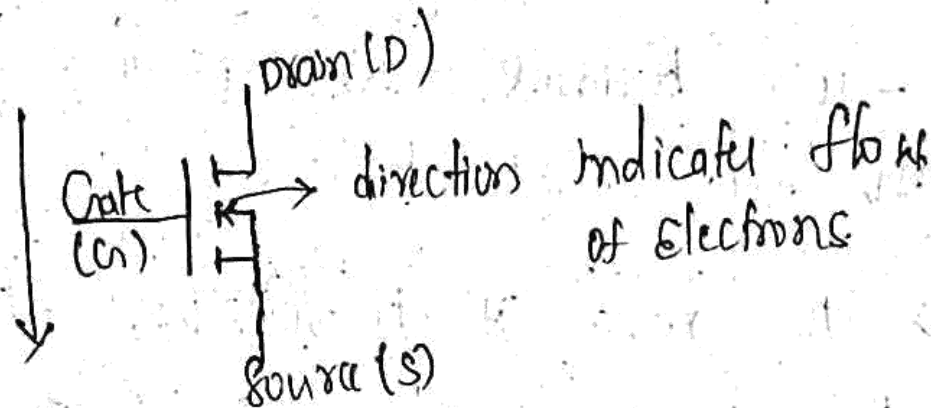 Drain (D)
Gate
(G)
direction indicates flow
of Electrons
Source (S)